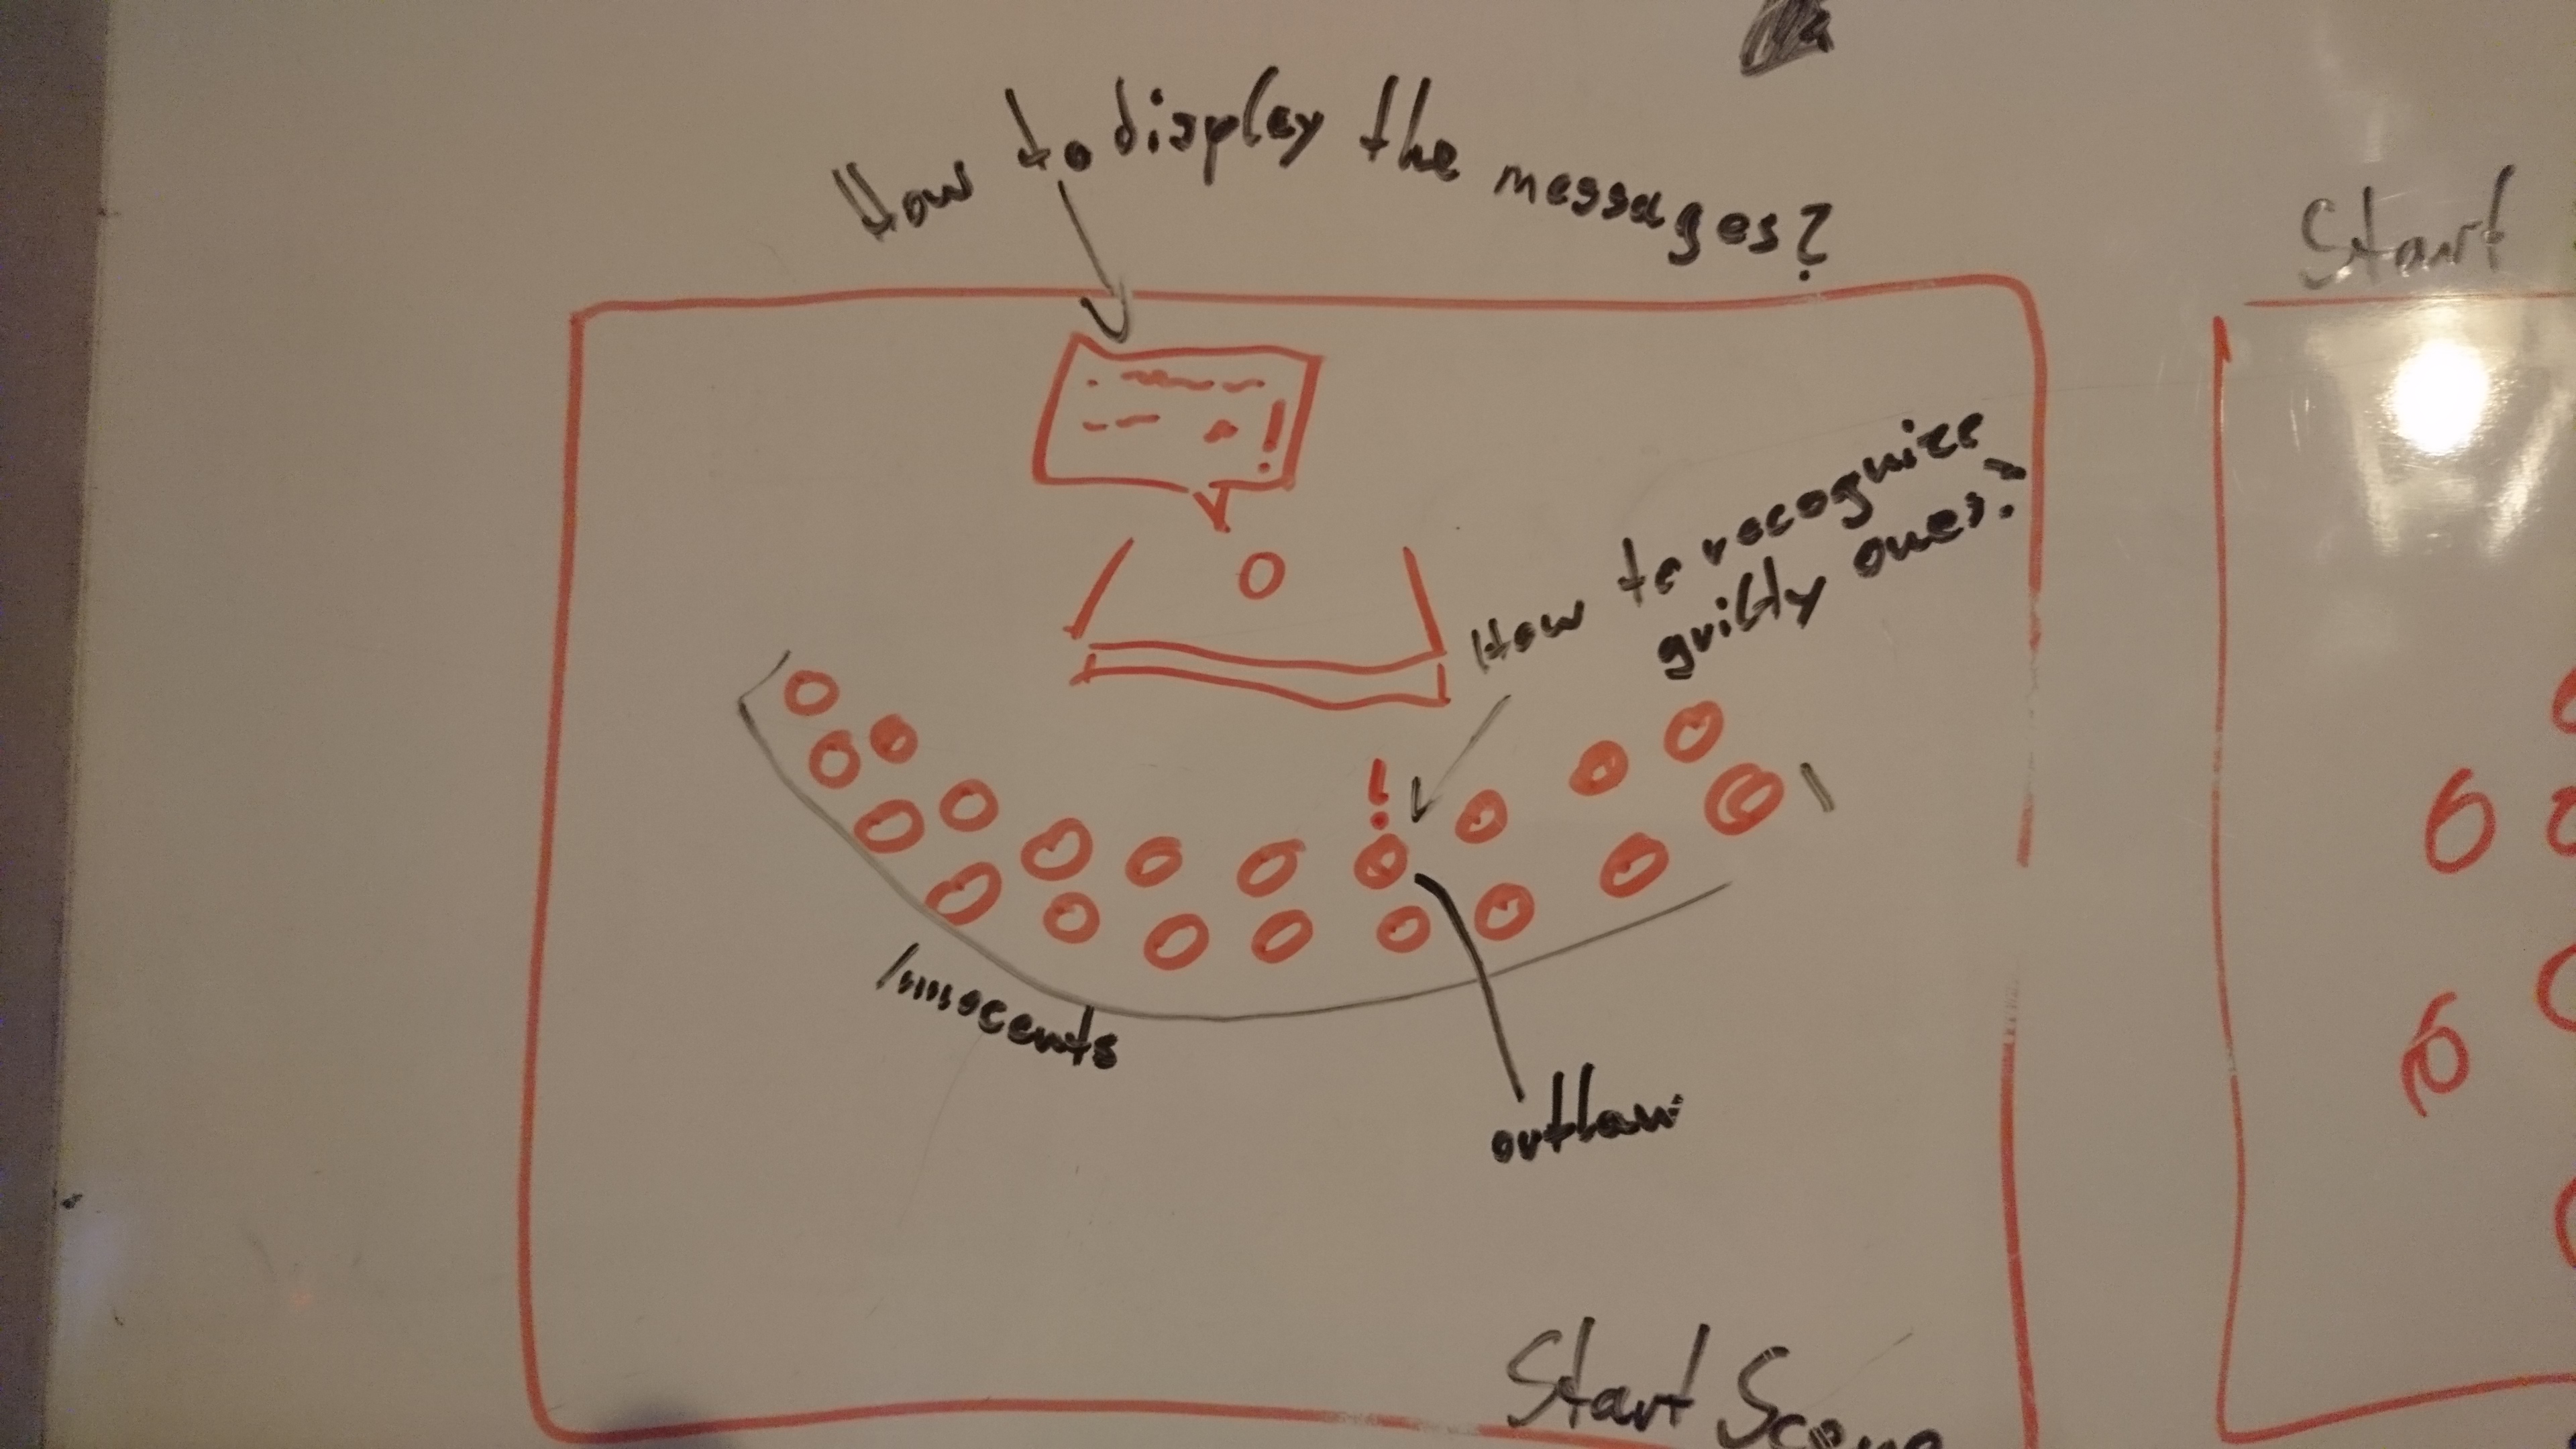 How to display the messages?
Start
How to recognize
guilty ones?
!
!
Innocents
outlaw
Start Scene